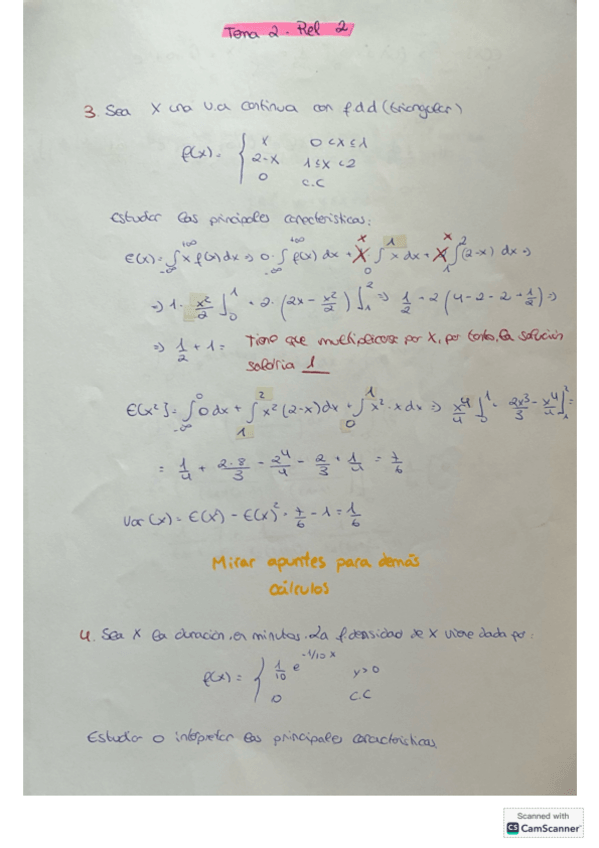 Tema 2 - Rel 2
3. Sea X una v.a continua con fdd (triangular)
f(x) = { x 0 < x ≤ 1
2-x 1 ≤ x < 2
0 c.c
Estudiar las principales características:
E(x) = ∫_{-∞}^{+∞} x f(x) dx => 0 · ∫_{-∞}^{+∞} f(x) dx + X · ∫_0^1 x dx + X ∫_1^2 (2-x) dx =>
=> 1 · x²/2 ]_0^1 + 2 · (2x - x²/2) ]_1^2 => 1/2 + 2 (4 - 2 - 2 + 1/2) =>
=> 1/2 + 1 = Tiene que multiplicarse por X, por tanto, la solución
saldría 1
E(x²) = ∫_{-∞}^0 0 dx + ∫_1^2 x² (2-x) dx + ∫_0^1 x² · x dx => x⁴/4 ]_0^1 + 2x³/3 - x⁴/4 ]_1^2 =
= 1/4 + 2·8/3 - 2⁴/4 - 2/3 + 1/4 = 7/6
Var (x) = E(x²) - E(x)² = 7/6 - 1 = 1/6
Mirar apuntes para demás
cálculos
4. Sea X la duración, en minutos. La f densidad de X viene dada por:
f(x) = { 1/10 e^{-1/10 x} y>0
0 c.c
Estudiar o interpretar las principales características.
Scanned with
CS CamScanner